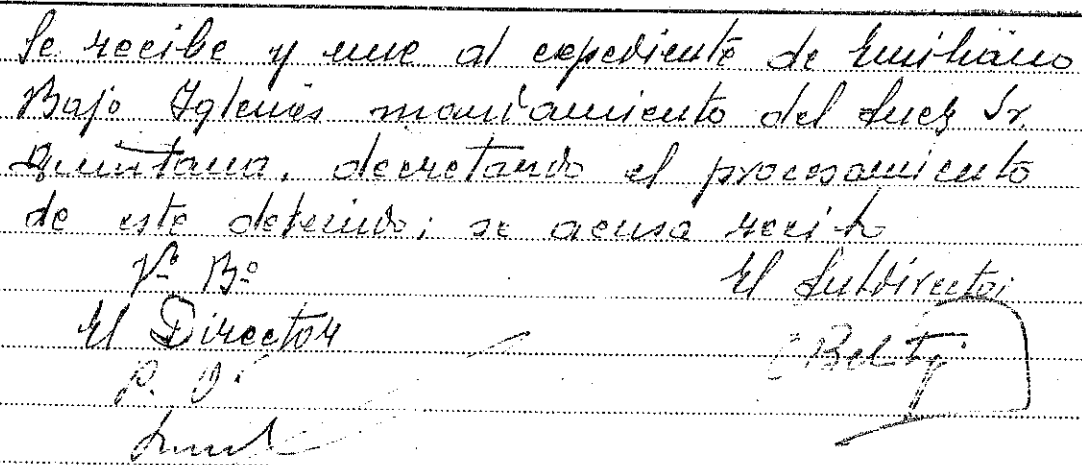 Se recibe y une al expediente de Emiliano
Bajo Iglesias mandamiento del Juez Sr.
Quintana, decretando el procesamiento
de este detenido; se acusa recibo
Vº Bº El Subdirector
El Director
P. O.